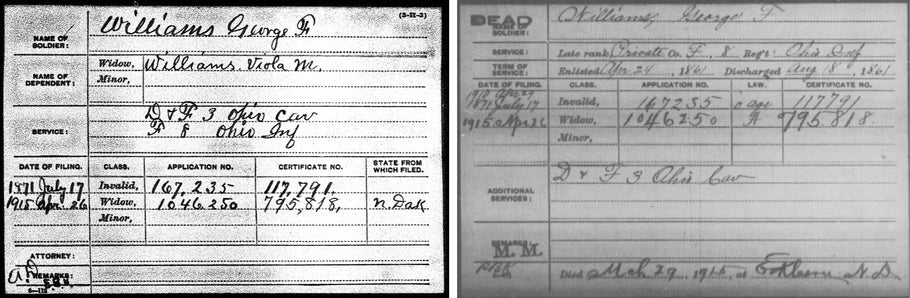 (3-11-3)
NAME OF SOLDIER: Williams George F
NAME OF DEPENDENT: Widow, Williams, Viola M.
Minor,
SERVICE: D & F 3 Ohio Cav
F 8 Ohio Inf
DATE OF FILING. CLASS. APPLICATION NO. CERTIFICATE NO. STATE FROM WHICH FILED.
1871 July 17 Invalid, 167,235 117,791.
1915 Apr. 26 Widow, 1046250 795,818, N. Dak
Minor,
ATTORNEY:
REMARKS:
DEAD
NAME OF SOLDIER: Williams, George F
SERVICE: Late rank, Private Co. F, 8 Reg't Ohio Inf
TERM OF SERVICE: Enlisted Apr 24, 1861 Discharged Aug 18, 1861
DATE OF FILING. CLASS. APPLICATION NO. LAW. CERTIFICATE NO.
1871 July 17 Invalid, 167235 117791
1915 Apr 26 Widow, 1046250 795818.
Minor,
ADDITIONAL SERVICES: D & F 3 Ohio Cav
REMARKS:
M.M.
Died Mch 29, 1915, at N.D.